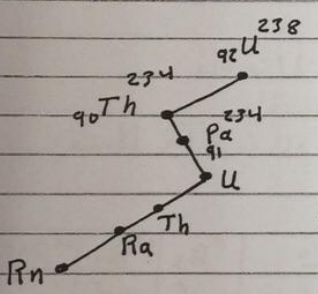 ₉₂U²³⁸
₉₀Th²³⁴
₉₁Pa²³⁴
U
Th
Ra
Rn